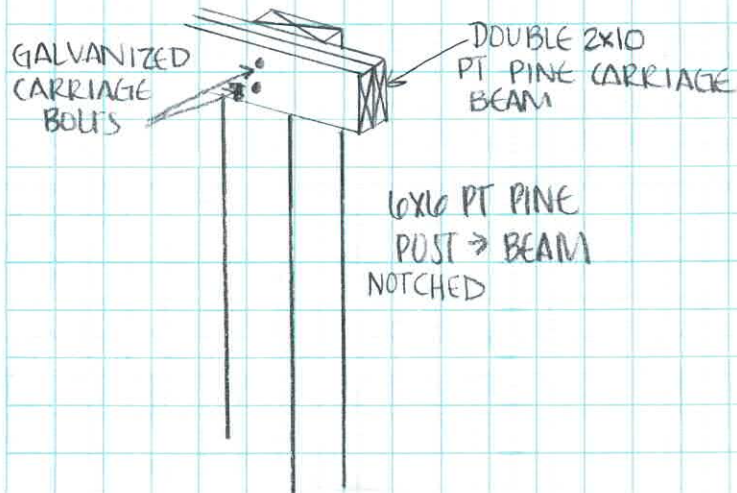 GALVANIZED
CARRIAGE
BOLTS
DOUBLE 2X10
PT PINE CARRIAGE
BEAM
6X6 PT PINE
POST → BEAM
NOTCHED